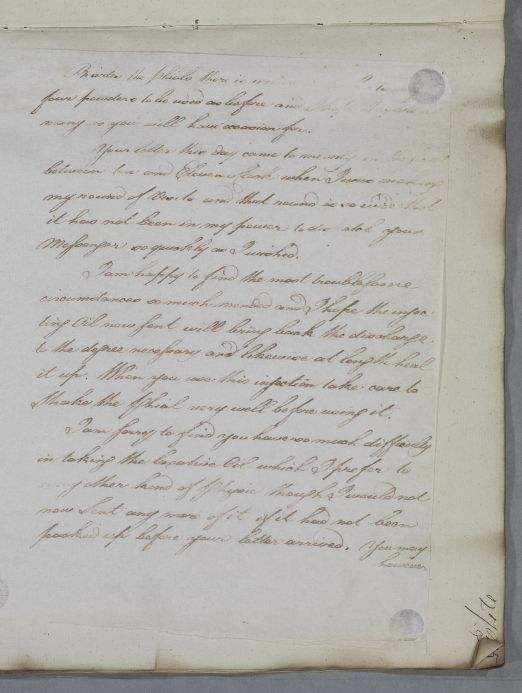 Besides the Phials there is
four powders to be used as before and
many as you will have occasion for.
Your letter this day came to me
between ten and Eleven o'clock when I was making
my round of visits and that round is so wide that
it has not been in my power to dispatch your
Messenger so quickly as I wished.
I am happy to find the most troublesome
circumstances so much mended and I hope the injec-
ting Oil now sent will bring back the discharge
to the degree necessary and likewise at length heal
it up. When you use this injection take care to
shake the Phial very well before using it.
I am sorry to find you have so much difficulty
in taking the laxative Oil which I prefer to
any other kind of Physic though I would not
now sent any more of it if it had not been
packed up before your letter arrived. You may
however